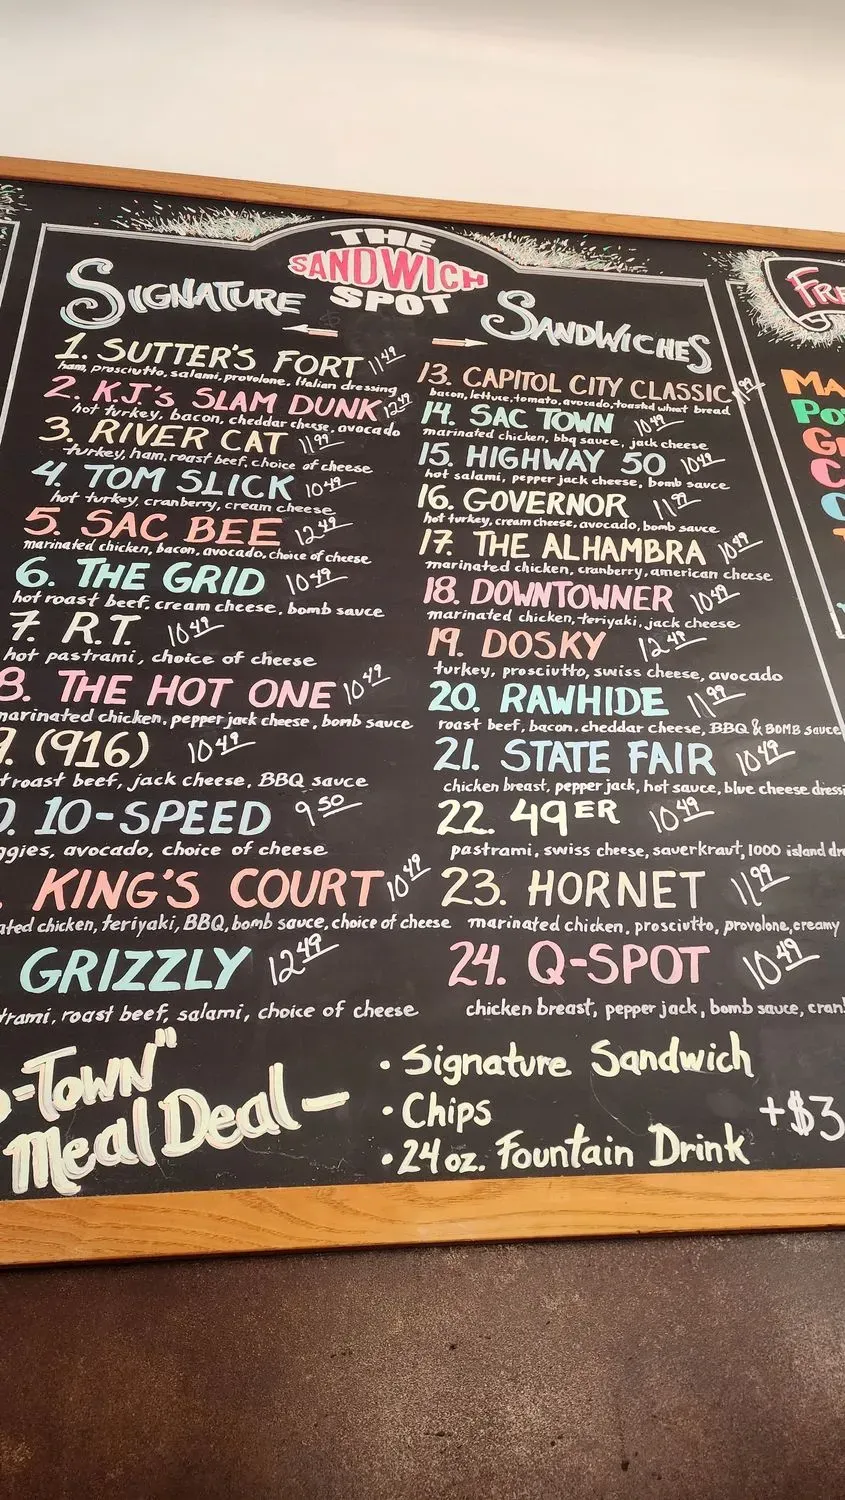 THE
SANDWICH
SPOT
SIGNATURE
SANDWICHES
1. SUTTER'S FORT 11.49
ham, prosciutto, salami, provolone, Italian dressing
2. K.J.'s SLAM DUNK 12.49
hot turkey, bacon, cheddar cheese, avocado
3. RIVER CAT 11.99
turkey, ham, roast beef, choice of cheese
4. TOM SLICK 10.49
hot turkey, cranberry, cream cheese
5. SAC BEE 12.49
marinated chicken, bacon, avocado, choice of cheese
6. THE GRID 10.49
hot roast beef, cream cheese, bomb sauce
7. R.T. 10.49
hot pastrami, choice of cheese
8. THE HOT ONE 10.49
marinated chicken, pepper jack cheese, bomb sauce
9. (916) 10.49
roast beef, jack cheese, BBQ sauce
10-SPEED 9.50
avocado, choice of cheese
KING'S COURT 10.49
chicken, teriyaki, BBQ, bomb sauce, choice of cheese
GRIZZLY 12.49
roast beef, salami, choice of cheese
13. CAPITOL CITY CLASSIC
bacon, lettuce, tomato, avocado, toasted wheat bread
14. SAC TOWN 10.49
marinated chicken, bbq sauce, jack cheese
15. HIGHWAY 50 10.49
hot salami, pepper jack cheese, bomb sauce
16. GOVERNOR 11.99
hot turkey, cream cheese, avocado, bomb sauce
17. THE ALHAMBRA 10.49
marinated chicken, cranberry, american cheese
18. DOWNTOWNER 10.49
marinated chicken, teriyaki, jack cheese
19. DOSKY 12.49
turkey, prosciutto, swiss cheese, avocado
20. RAWHIDE 11.99
roast beef, bacon, cheddar cheese, BBQ & BOMB sauce
21. STATE FAIR 10.49
chicken breast, pepper jack, hot sauce, blue cheese dressi
22. 49ER 10.49
pastrami, swiss cheese, sauerkraut, 1000 island dr
23. HORNET 11.99
marinated chicken, prosciutto, provolone, creamy
24. Q-SPOT 10.49
chicken breast, pepper jack, bomb sauce, cran
-TOWN"
Meal Deal –
• Signature Sandwich
• Chips
• 24 oz. Fountain Drink
+$3
FRE
MA